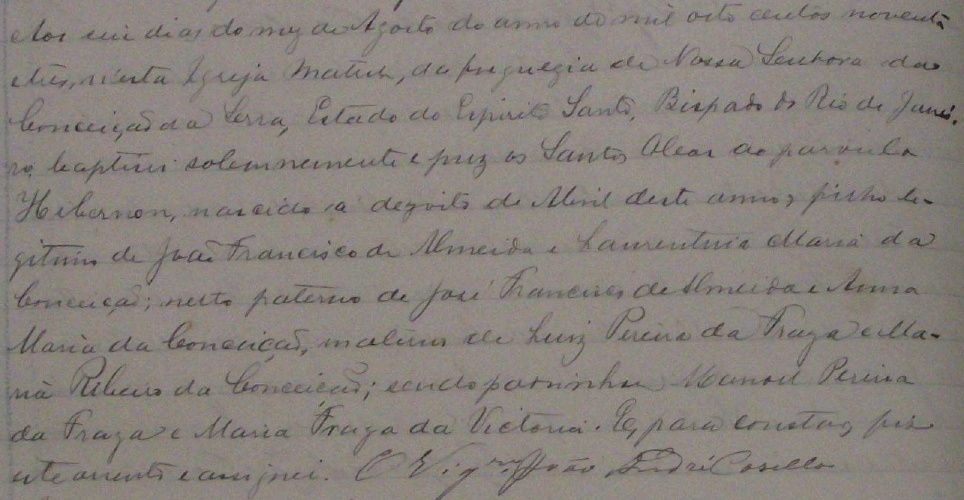 Aos seis dias do mez de Agosto do anno de mil oito centos noventa
e tres, n'esta Igreja Matriz, da freguezia de Nossa Senhora da
Conceição da Serra, Estado do Espirito Santo, Bispado do Rio de Janei-
ro, baptisei solemnemente e puz os Santos Oleos ao parvulo
Hebernon, nascido a dezoito de Abril deste anno, filho le-
gitimo de João Francisco de Almeida e Laurentina Maria da
Conceição; netto paterno de José Francisco de Almeida e Anna
Maria da Conceição, materno de Luiz Pereira da Fraga e Ma-
ria Ribeiro da Conceição; sendo padrinhos Manoel Pereira
da Fraga e Maria Fraga da Victoria. E, para constar, fiz
este assento e assignei. O Vigrº João